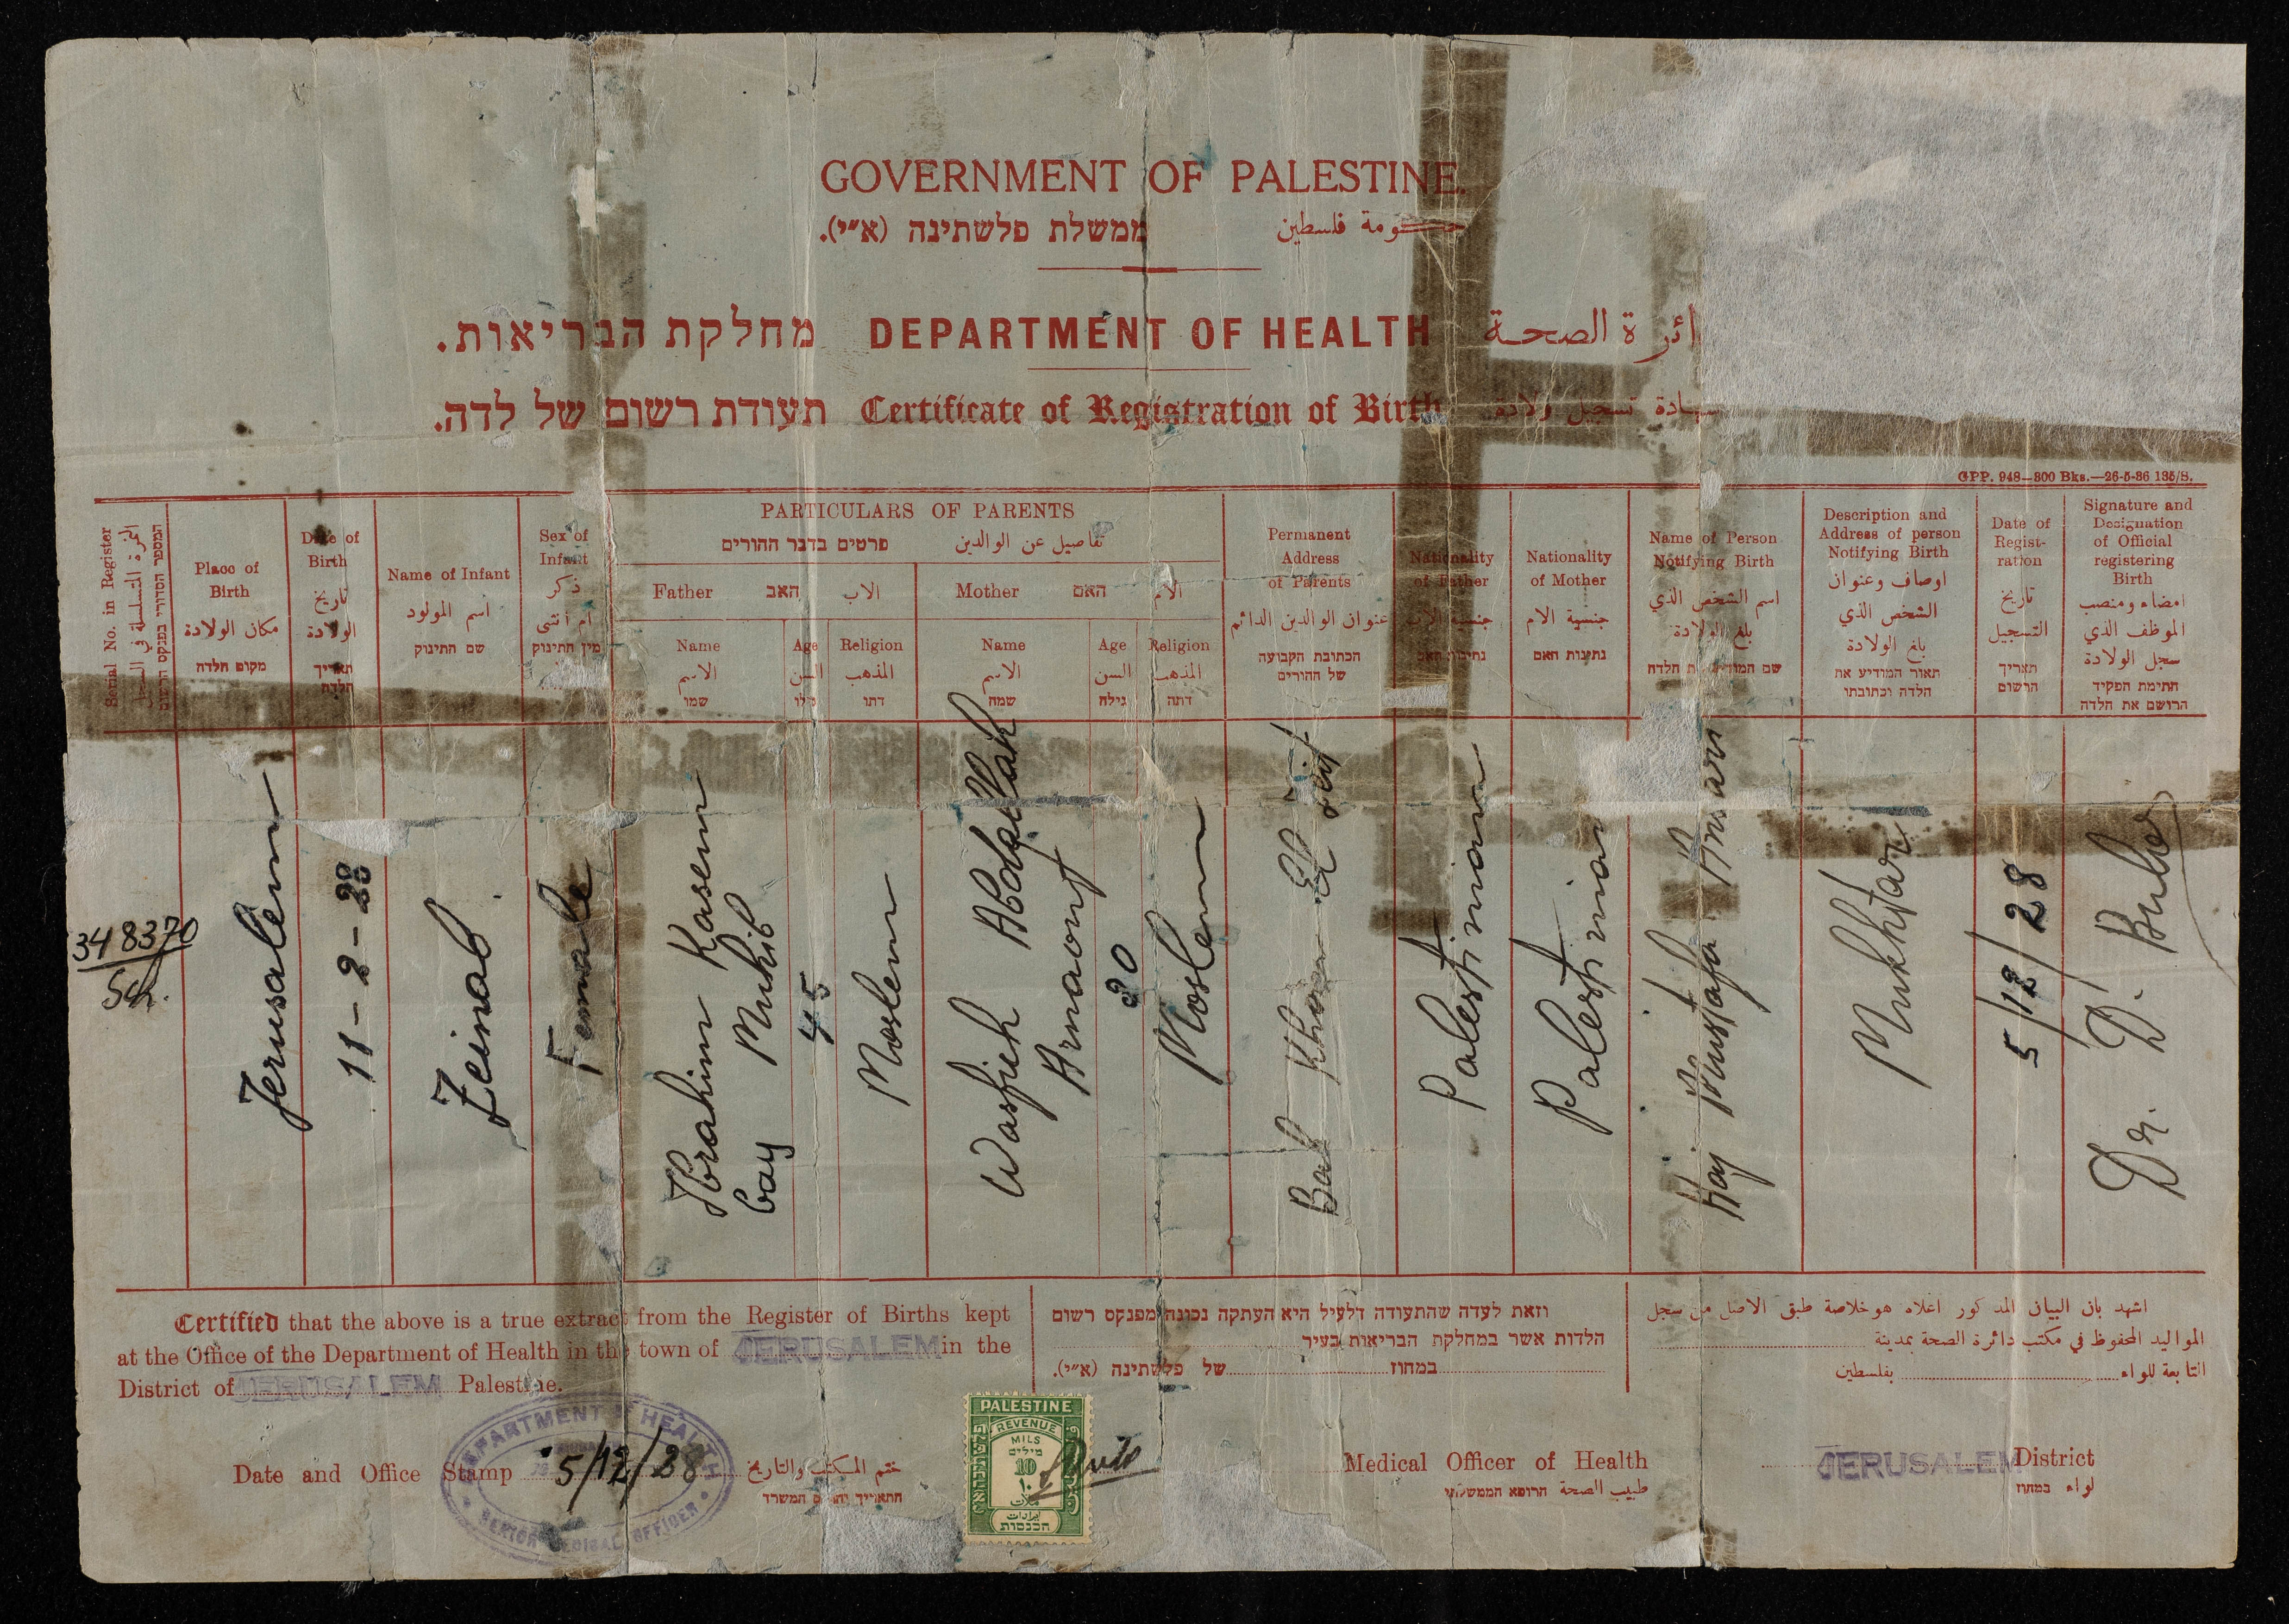 GOVERNMENT OF PALESTINE.
ממשלת פלשתינה (א״י). حكومة فلسطين
מחלקת הבריאות. DEPARTMENT OF HEALTH ائرة الصحة
תעודת רשום של לדה. Certificate of Registration of Birth شهادة تسجيل ولادة
GPP. 948—800 Bks.—26-5-36 135/S.
Serial No. in Register
النمرة المتسلسلة في السجل
המספר הסדורי בפנקס הרשום
Place of Birth
مكان الولادة
מקום הלדה
Date of Birth
تاريخ الولادة
תאריך הלדה
Name of Infant
اسم المولود
שם התינוק
Sex of Infant
ذكر أم أنثى
מין התינוק
PARTICULARS OF PARENTS
פרטים בדבר ההורים تفاصيل عن الوالدين
Father האב الاب
Mother האם الام
Name الاسم שמו
Age السن גילו
Religion المذهب דתו
Name الاسم שמה
Age السن גילה
Religion المذهب דתה
Permanent Address of Parents
عنوان الوالدين الدائم
הכתובת הקבועה של ההורים
Nationality of Father
جنسية الاب
נתינות האב
Nationality of Mother
جنسية الام
נתינות האם
Name of Person Notifying Birth
اسم الشخص الذي بلغ الولادة
שם המודיע את הלדה
Description and Address of person Notifying Birth
اوصاف وعنوان الشخص الذي بلغ الولادة
תאור המודיע את הלדה וכתובתו
Date of Registration
تاريخ التسجيل
תאריך הרשום
Signature and Designation of Official registering Birth
امضاء ومنصب الموظف الذي سجل الولادة
חתימת הפקיד הרושם את הלדה
348370
Sch.
Jerusalem
11-2-28
Zeinab
Female
Ibrahim Kasem
bay Muhib
45
Moslem
Wasfieh Abdallah
Arnaout
20
Moslem
Bab Khan El Zeit
Palestinian
Palestinian
Haj Mustafa Ansari
Mukhtar
5/12/28
Dr. D. Buler
Certified that the above is a true extract from the Register of Births kept
at the Office of the Department of Health in the town of JERUSALEM in the
District of JERUSALEM Palestine.
וזאת לעדה שהתעודה דלעיל היא העתקה נכונה מפנקס רשום
הלדות אשר במחלקת הבריאות בעיר
במחוז של פלשתינה (א״י).
اشهد بان البيان المذكور اعلاه هو خلاصة طبق الاصل من سجل
المواليد المحفوظ في مكتب دائرة الصحة بمدينة
التابعة للواء بفلسطين
Date and Office Stamp 5/12/38 ختم المكتب والتاريخ
התאריך וחותם המשרד
DEPARTMENT OF HEALTH
SENIOR MEDICAL OFFICER
PALESTINE
REVENUE
MILS
מילים
10
١٠
ملات
ايرادات
הכנסות
Medical Officer of Health
طبيب الصحة הרופא הממשלתי
JERUSALEM District
لواء במחוז